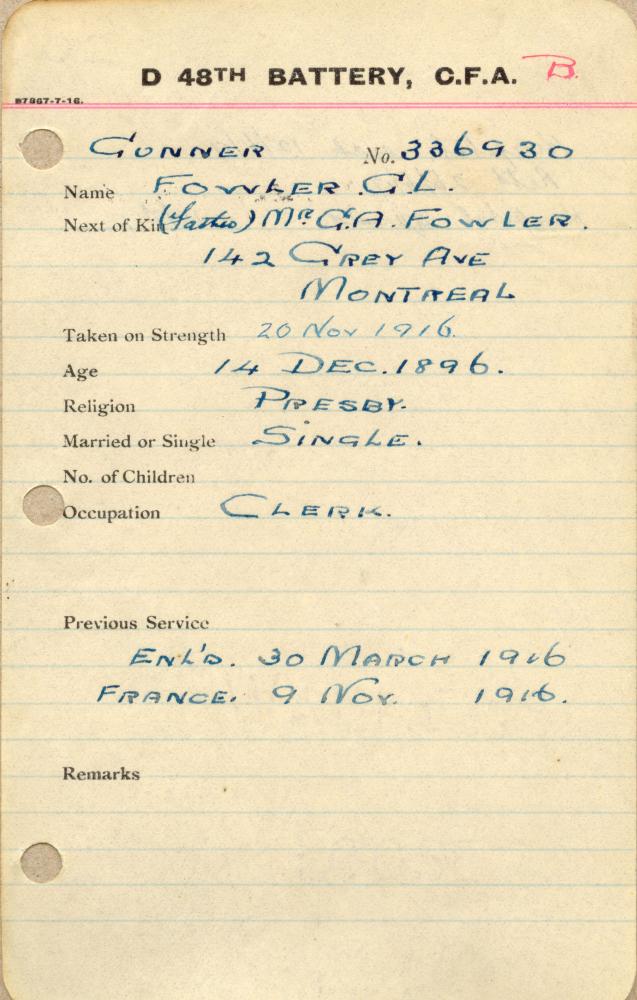 D 48TH BATTERY, C.F.A. B.
B7867-7-16.
GUNNER No. 336930
Name FOWLER. G.L.
Next of Kin (Father) Mr. G.A. FOWLER.
142 GREY AVE
MONTREAL
Taken on Strength 20 Nov 1916.
Age 14 DEC. 1896.
Religion PRESBY.
Married or Single SINGLE.
No. of Children
Occupation CLERK.
Previous Service
ENL'D. 30 MARCH 1916
FRANCE. 9 Nov. 1916.
Remarks